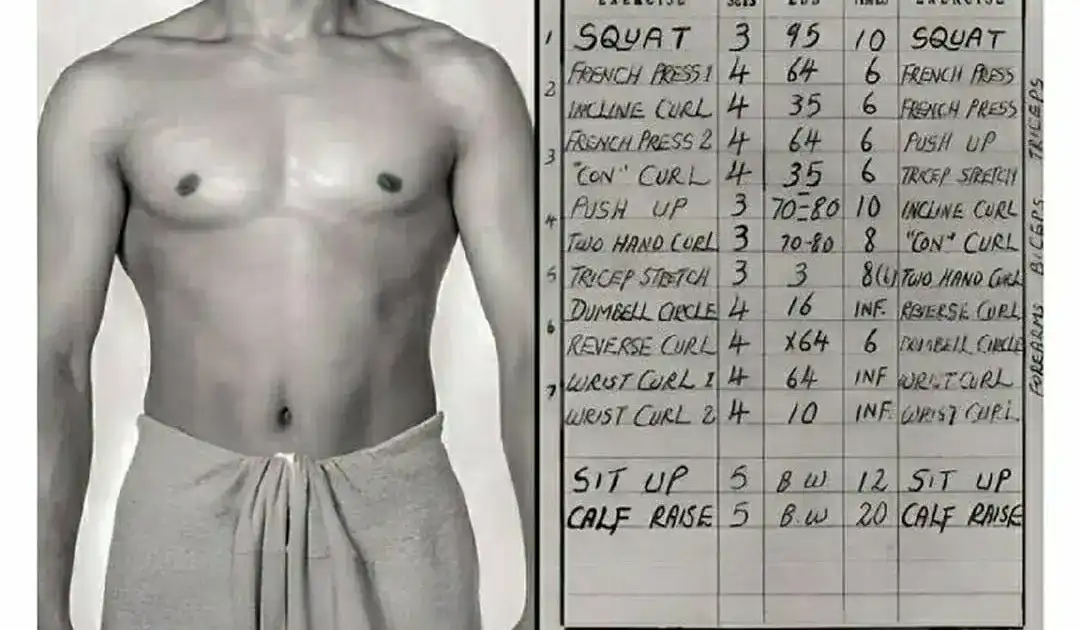 EXERCISE SETS LBS TIMES EXERCISE
1 SQUAT 3 95 10 SQUAT
FRENCH PRESS 1 4 64 6 FRENCH PRESS
2 INCLINE CURL 4 35 6 FRENCH PRESS
FRENCH PRESS 2 4 64 6 PUSH UP
3 "CON" CURL 4 35 6 TRICEP STRETCH
PUSH UP 3 70-80 10 INCLINE CURL
4 TWO HAND CURL 3 70-80 8 "CON" CURL
5 TRICEP STRETCH 3 3 8 TWO HAND CURL
DUMBELL CIRCLE 4 16 INF. REVERSE CURL
6 REVERSE CURL 4 X64 6 DUMBELL CIRCLE
7 WRIST CURL 1 4 64 INF WRIST CURL
WRIST CURL 2 4 10 INF. WRIST CURL
SIT UP 5 B.W 12 SIT UP
CALF RAISE 5 B.W 20 CALF RAISE
FOREARMS BICEPS TRICEPS